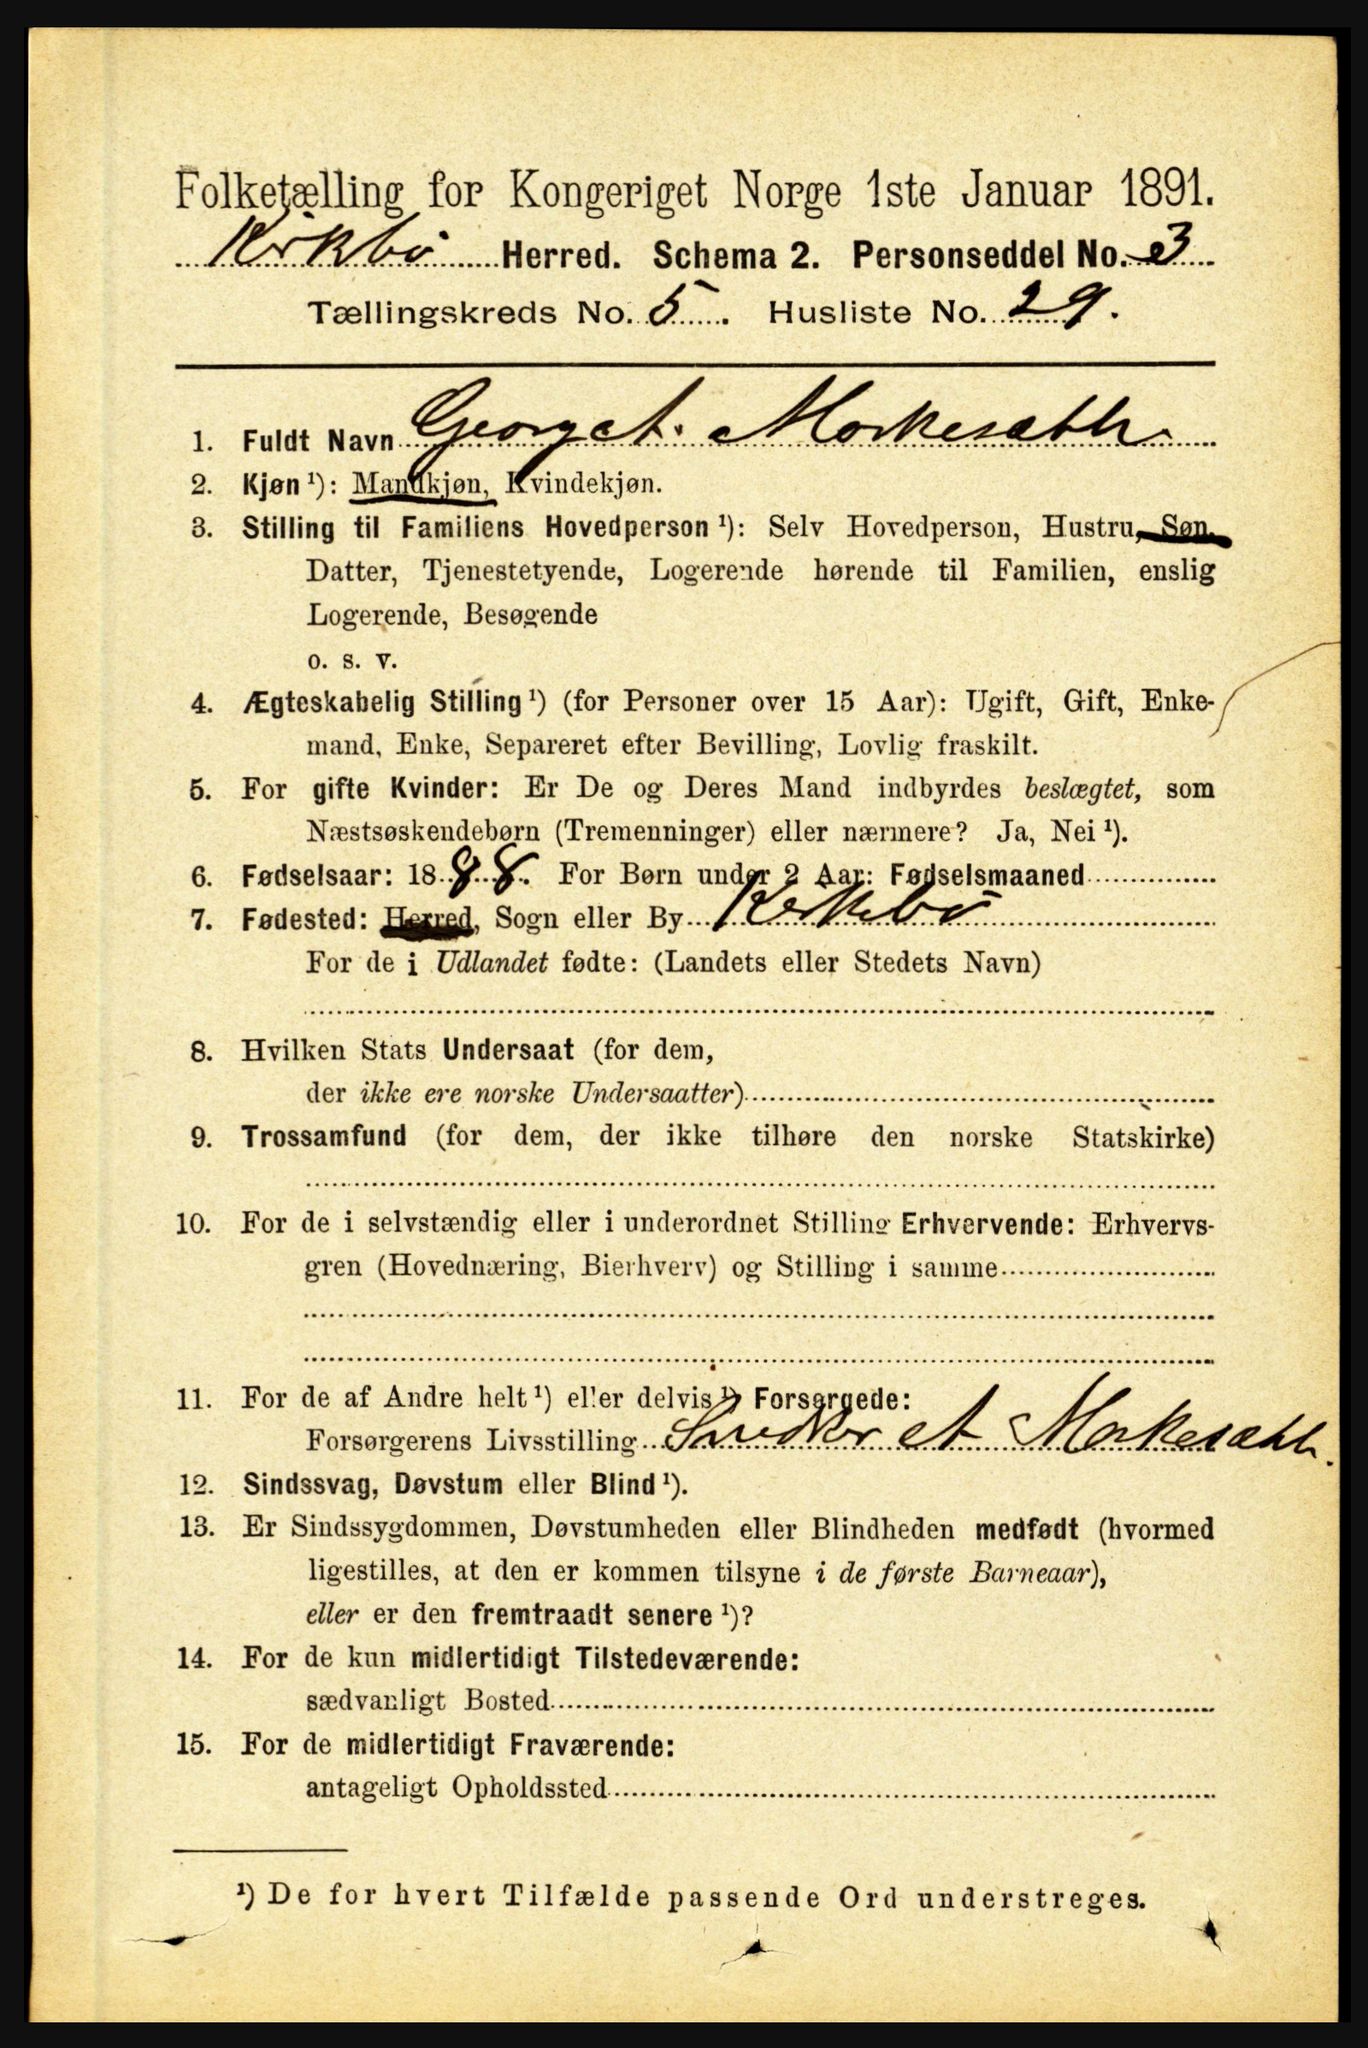 Folketælling for Kongeriget Norge 1ste Januar 1891.
Kirkbø Herred. Schema 2. Personseddel No. 3
Tællingskreds No. 5. Husliste No. 29.
1. Fuldt Navn Georg A. Morkesæth
2. Kjøn ¹): Mandkjøn, Kvindekjøn.
3. Stilling til Familiens Hovedperson ¹): Selv Hovedperson, Hustru, Søn,
Datter, Tjenestetyende, Logerende hørende til Familien, enslig
Logerende, Besøgende
o. s. v.
4. Ægteskabelig Stilling ¹) (for Personer over 15 Aar): Ugift, Gift, Enke-
mand, Enke, Separeret efter Bevilling, Lovlig fraskilt.
5. For gifte Kvinder: Er De og Deres Mand indbyrdes beslægtet, som
Næstsøskendebørn (Tremenninger) eller nærmere? Ja, Nei ¹).
6. Fødselsaar: 1888. For Børn under 2 Aar: Fødselsmaaned
7. Fødested: Herred, Sogn eller By Kirkebø
For de i Udlandet fødte: (Landets eller Stedets Navn)
8. Hvilken Stats Undersaat (for dem,
der ikke ere norske Undersaatter)
9. Trossamfund (for dem, der ikke tilhøre den norske Statskirke)
10. For de i selvstændig eller i underordnet Stilling Erhvervende: Erhvervs-
gren (Hovednæring, Bierhverv) og Stilling i samme
11. For de af Andre helt ¹) eller delvis ¹) Forsørgede:
Forsørgerens Livsstilling Snedker A Morkesæth.
12. Sindssvag, Døvstum eller Blind ¹).
13. Er Sindssygdommen, Døvstumheden eller Blindheden medfødt (hvormed
ligestilles, at den er kommen tilsyne i de første Barneaar),
eller er den fremtraadt senere ¹)?
14. For de kun midlertidigt Tilstedeværende:
sædvanligt Bosted
15. For de midlertidigt Fraværende:
antageligt Opholdssted
¹) De for hvert Tilfælde passende Ord understreges.